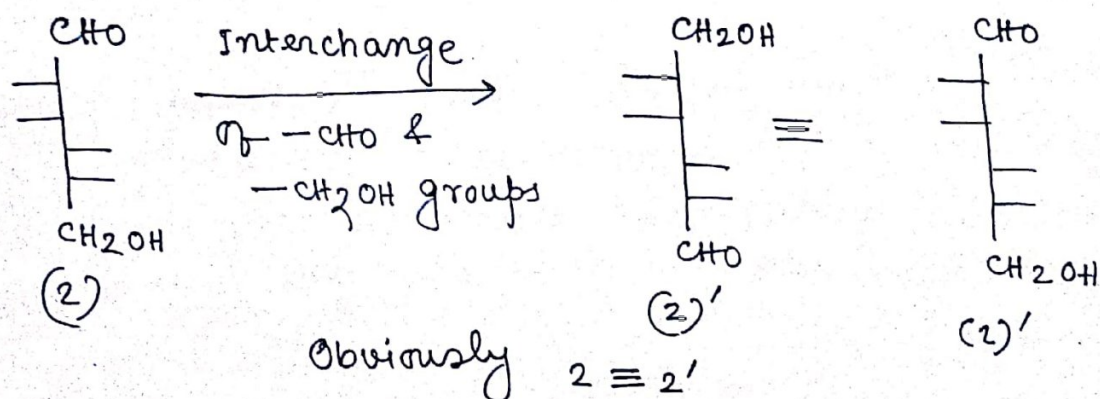 CHO
Interchange
of -CHO &
-CH2OH groups
CH2OH
(2)
CH2OH
≡
CHO
(2)'
CHO
CH2OH
(2)'
Obviously 2 ≡ 2'